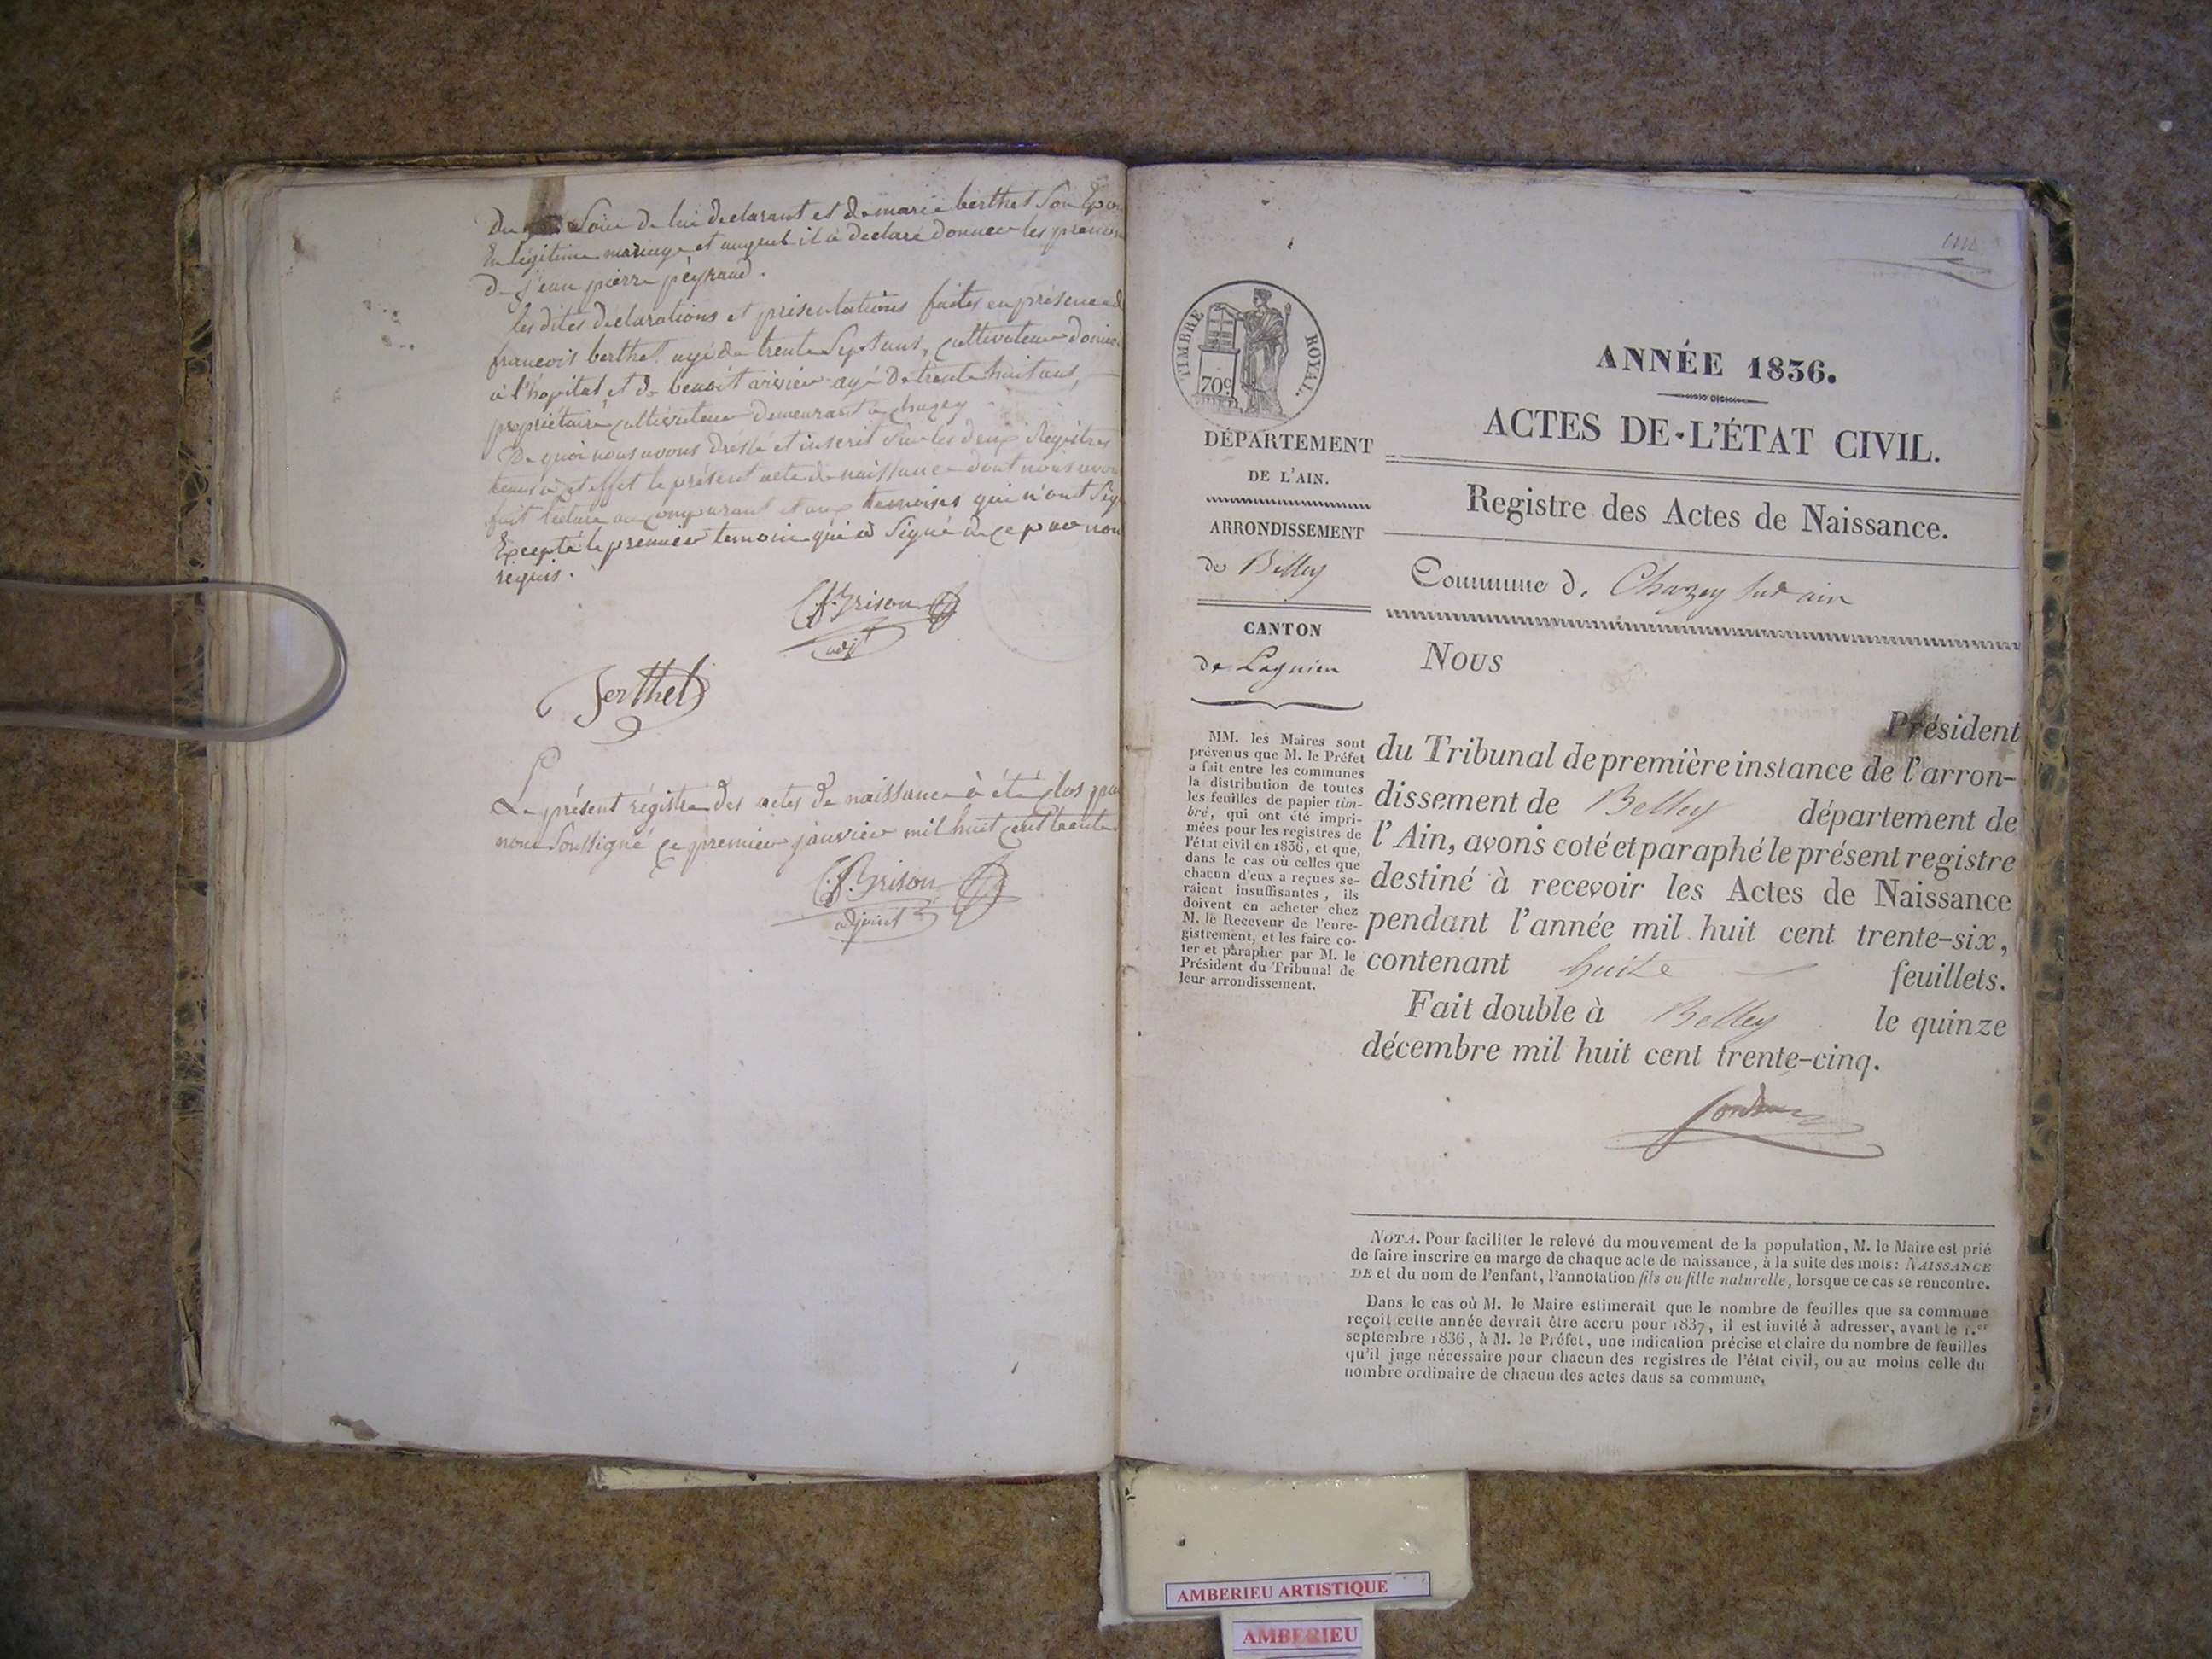 du soir de lui declarant et de marie berthet son Epou
En legitime mariage et auquel il a declaré donner les prenom
de jean pierre peyraud.
les dites declarations et présentations faites en présence de
francois berthet agé de trente sept ans, cultivateur domici
à l'hopital et de benoit agé de trente huit ans,
propriétaire cultivateur demeurant à chazey
De quoi nous avons dressé et inscrit sur les deux Registres
tenus à cet effet le présent acte de naissance dont nous avon
fait lecture au comparant et aux temoins qui n'ont sig
Excepté le premier temoin qui a signé de ce par nou
requis.
C.f. Brison
adjt
Berthet
Le présent registre des actes de naissance à été clos par
nous soussigné ce premier janvier mil huit cent trente
C.f. Brison
adjoint
TIMBRE ROYAL.
70c
ANNÉE 1836.
ACTES DE L'ÉTAT CIVIL.
Registre des Actes de Naissance.
DÉPARTEMENT
DE L'AIN.
ARRONDISSEMENT
de Belley
CANTON
de Lagnieu
Commune d. Chazey sur ain
Nous
Président
du Tribunal de première instance de l'arron-
dissement de Belley département de
l'Ain, avons coté et paraphé le présent registre
destiné à recevoir les Actes de Naissance
pendant l'année mil huit cent trente-six,
contenant huit feuillets.
Fait double à Belley le quinze
décembre mil huit cent trente-cinq.
MM. les Maires sont
prévenus que M. le Préfet
a fait entre les communes
la distribution de toutes
les feuilles de papier tim-
bré, qui ont été impri-
mées pour les registres de
l'état civil en 1836, et que,
dans le cas où celles que
chacun d'eux a reçues se-
raient insuffisantes, ils
doivent en acheter chez
M. le Receveur de l'enre-
gistrement, et les faire co-
ter et parapher par M. le
Président du Tribunal de
leur arrondissement.
NOTA. Pour faciliter le relevé du mouvement de la population, M. le Maire est prié
de faire inscrire en marge de chaque acte de naissance, à la suite des mots: NAISSANCE
DE et du nom de l'enfant, l'annotation fils ou fille naturelle, lorsque ce cas se rencontre.
Dans le cas où M. le Maire estimerait que le nombre de feuilles que sa commune
reçoit cette année devrait être accru pour 1837, il est invité à adresser, avant le 1.er
septembre 1836, à M. le Préfet, une indication précise et claire du nombre de feuilles
qu'il juge nécessaire pour chacun des registres de l'état civil, ou au moins celle du
nombre ordinaire de chacun des actes dans sa commune.
AMBERIEU ARTISTIQUE
AMBERIEU